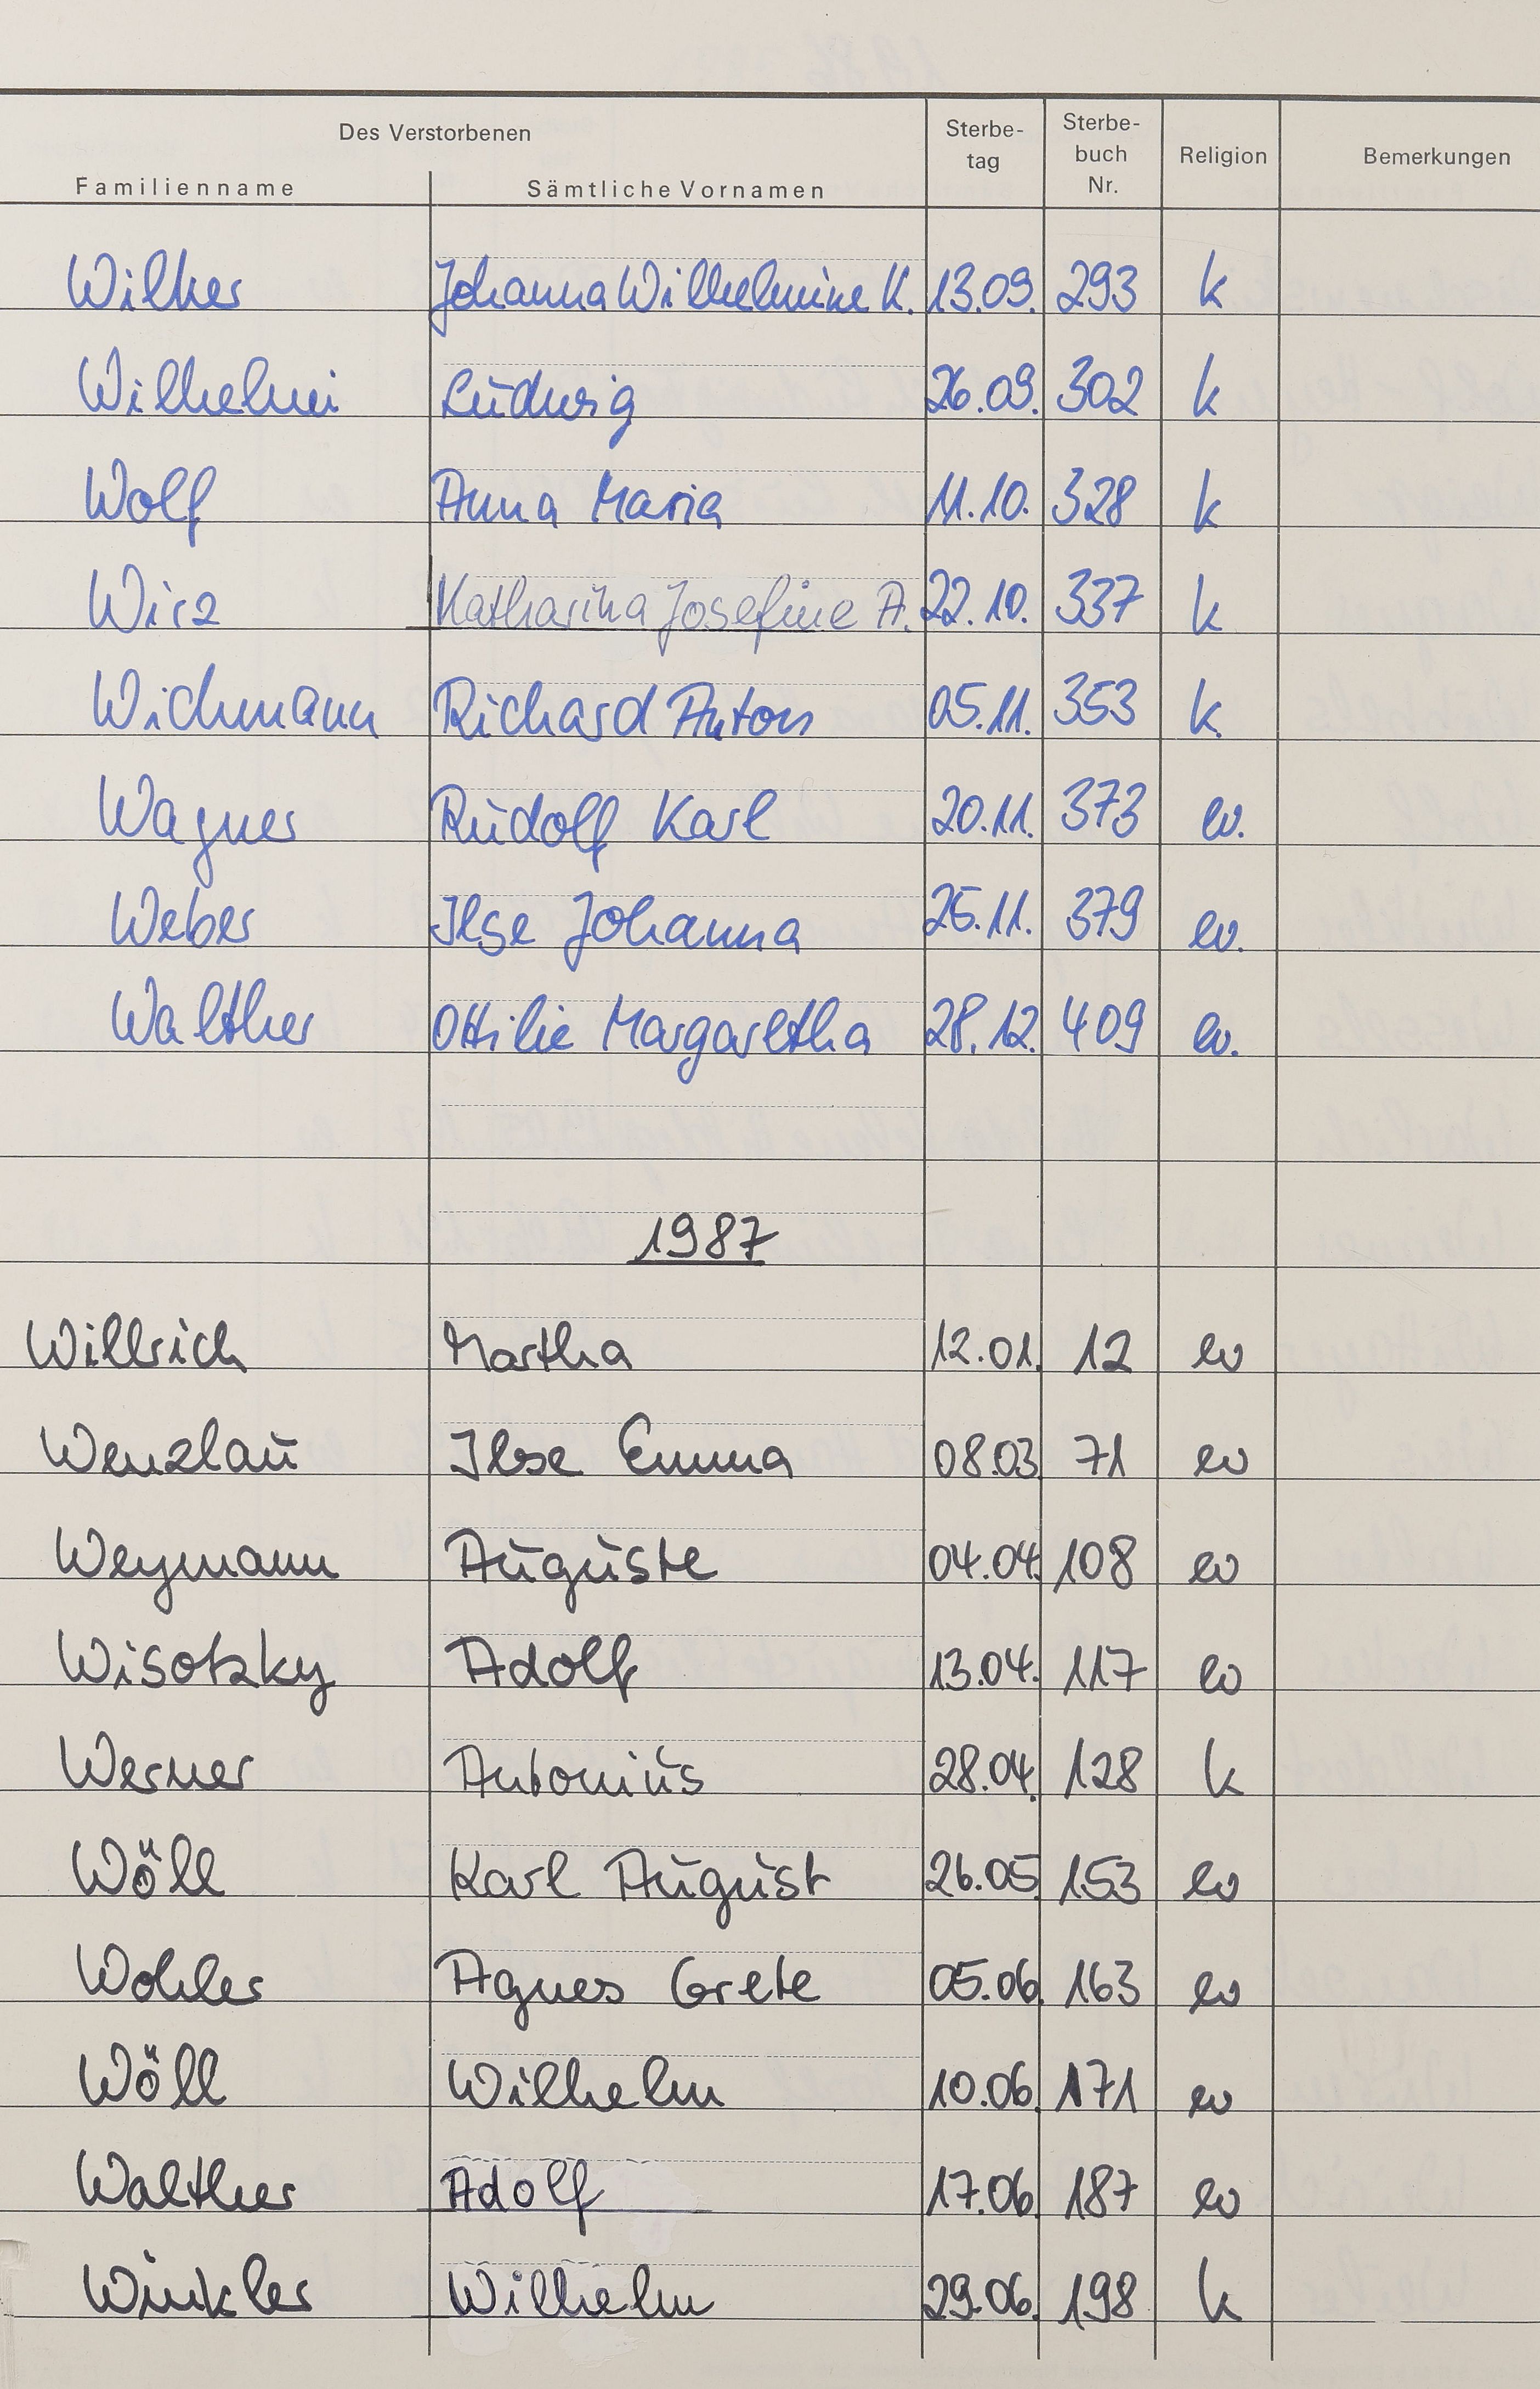 Des Verstorbenen
Familienname Sämtliche Vornamen Sterbe-tag Sterbe-buch Nr. Religion Bemerkungen
Wilker Johanna Wilhelmine K. 13.09. 293 k
Wilhelmi Ludwig 26.09. 302 k
Wolf Anna Maria 11.10. 328 k
Wirz Katharina Josefine A. 22.10. 337 k
Wichmann Richard Anton 05.11. 353 k.
Wagner Rudolf Karl 20.11. 373 ev.
Weber Ilse Johanna 25.11. 379 ev.
Walther Ottilie Margaretha 28.12. 409 ev.
1987
Willrich Martha 12.01. 12 ev
Wenzlau Ilse Emma 08.03 71 ev
Weymann Auguste 04.04. 108 ev
Wisotzky Adolf 13.04. 117 ev
Werner Antonius 28.04. 128 k
Wöll Karl August 26.05 153 ev
Wohler Agnes Grete 05.06. 163 ev
Wöll Wilhelm 10.06. 171 ev
Walther Adolf 17.06. 187 ev
Winkler Wilhelm 29.06. 198 k